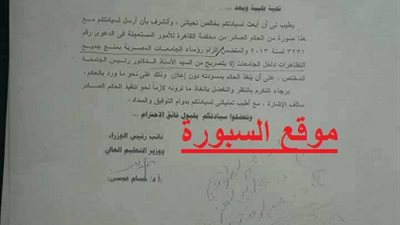 تحية طيبة وبعد ...
يطيب لي أن أبعث لسيادتكم بخالص تحياتي، وأتشرف بأن أرسل لسيادتكم مع
هذا صورة من الحكم الصادر من محكمة القاهرة للأمور المستعجلة في الدعوى رقم
٣٢٣١ لسنة ٢٠١٣ والمتضمن إلزام رؤساء الجامعات المصرية بمنع جميع
التظاهرات داخل الجامعات إلا بتصريح من السيد الأستاذ الدكتور رئيس الجامعة
المختص، على أن ينفذ الحكم بمسودته دون إعلان وذلك على نحو ما ورد بالحكم.
برجاء التكرم بالنظر والتفضل باتخاذ ما ترونه لازماً نحو تنفيذ الحكم الصادر
سالف الإشارة، مع أطيب تمنياتي لسيادتكم بدوام التوفيق والسداد.
وتفضلوا سيادتكم بقبول فائق الاحترام ...
نائب رئيس الوزراء
ووزير التعليم العالي
أ.د. حسام عيسى
موقع السبورة